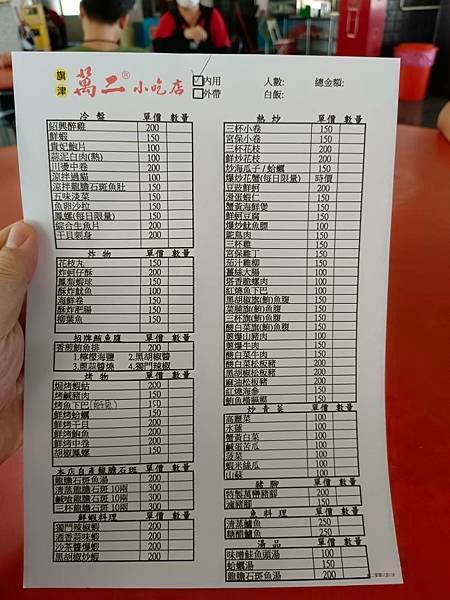 旗津
萬二® 小吃店
內用
外帶
人數:
白飯:
總金額:
冷盤 單價 數量
紹興醉雞 200
鮮蝦 150
貴妃鮑片 100
蒜泥白肉(熱) 100
川燙中卷 200
涼拌過貓 100
涼拌龍膽石斑魚肚 150
五味淡菜 150
魚卵沙拉 150
鳳螺(每日限量) 150
綜合生魚片 200
干貝刺身 200
炸物 單價 數量
花枝丸 150
炸蚵仔酥 200
鳳梨蝦球 150
酥炸魷魚 100
海鮮卷 150
酥炸肥腸 150
柳葉魚 150
招牌鮪魚腹 單價 數量
香煎鮪魚排 200
1.檸檬海鹽 2.黑胡椒醬
3.蔥蒜醬燒 4.獨門辣椒
烤物 單價 數量
焗烤蝦蛄 200
烤鹹豬肉 150
烤魚下巴 150
鮮烤蛤蠣 150
鮮烤干貝 200
鮮烤鮑魚 200
鮮烤中卷 200
胡椒鳳螺 150
本店自產龍膽石斑 單價 數量
龍膽石斑魚湯 200
清蒸龍膽石斑 10兩 300
鹹嗆龍膽石斑 10兩 300
三杯龍膽石斑 10兩 300
鮮蝦料理 單價 數量
獨門辣椒蝦 200
酒香蒜味蝦 200
沙茶醬爆蝦 200
黑胡椒炒蝦 200
熱炒 單價 數量
三杯小卷 150
宮保小卷 150
三杯花枝 200
鮮炒花枝 200
炒海瓜子/蛤蠣 150
爆炒花蟹(每日限量) 時價
豆豉鮮蚵 200
滑蛋蝦仁 150
蟹黃海鮮煲 150
鮮蚵豆腐 150
爆炒魷魚膘 100
鴕鳥肉 150
三杯雞 150
宮保雞丁 150
茄汁雞柳 150
薑絲大腸 100
塔香脆腸 100
紅燒魚下巴 150
黑胡椒旗(鮪)魚腹 150
菜脯旗(鮪)魚腹 150
三杯旗(鮪)魚腹 150
酸白菜旗(鮪)魚腹 150
蔥爆山豬肉 150
蔥爆牛肉 150
酸白菜牛肉 150
酸白菜松板豬 200
黑胡椒松板豬 200
麻油松板豬 200
紅燒海參 150
鮪魚橫膈膜 150
炒青菜 單價 數量
高麗菜 100
水蓮 100
蟹黃白菜 100
鹹蛋苦瓜 100
菠菜 100
蝦米絲瓜 100
山蘇 100
豬腳 單價 數量
特製萬巒豬腳 200
滷豬腳 150
魚料理 單價 數量
清蒸鱸魚 250
糖醋鱸魚 250
湯品 單價 數量
味噌鮭魚頭湯 100
蛤蠣湯 150
龍膽石斑魚湯 200